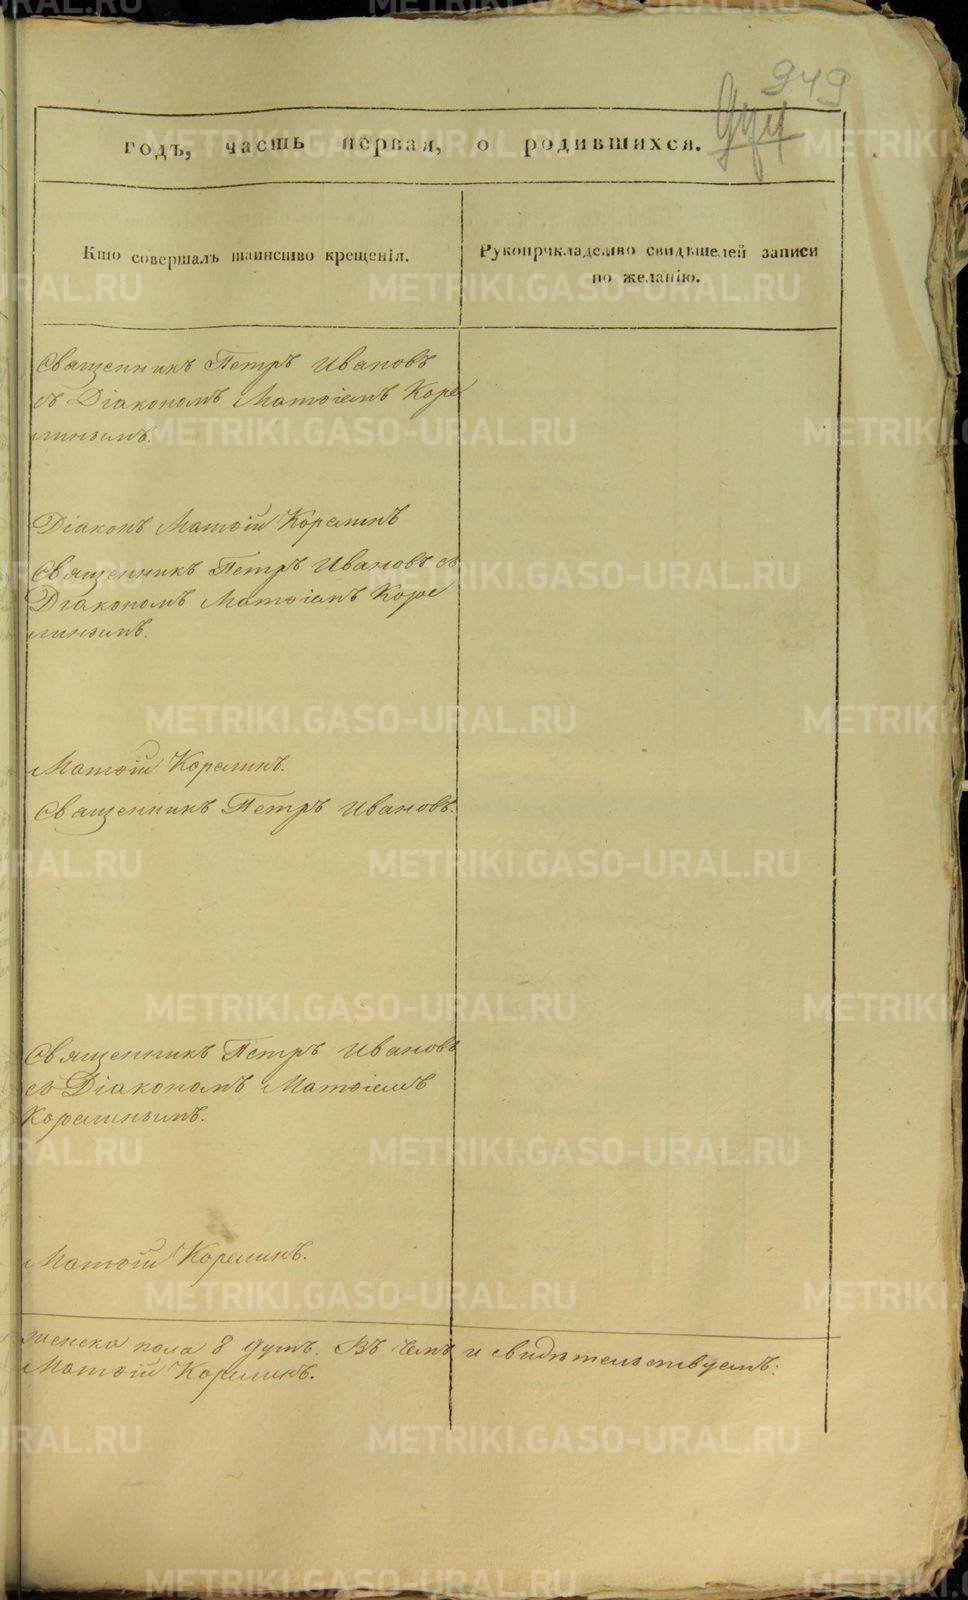 949
944
годъ, часть первая, о родившихся.
Кто совершалъ таинство крещенія.
Рукоприкладство свидѣтелей записи
по желанію.
Священникъ Петръ Ивановъ
съ Діакономъ Матѳіемъ Коре
линымъ.
Діаконъ Матѳій Корелинъ
Священникъ Петръ Ивановъ съ
Діакономъ Матѳіемъ Коре
линымъ.
Матѳій Корелинъ.
Священникъ Петръ Ивановъ.
Священникъ Петръ Ивановъ
съ Діакономъ Матѳіемъ
Корелинымъ.
Матѳій Корелинъ.
женска пола 8 душъ. Въ чемъ и свидѣтельствуемъ:
Матѳій Корелинъ.
METRIKI.GASO-URAL.RU